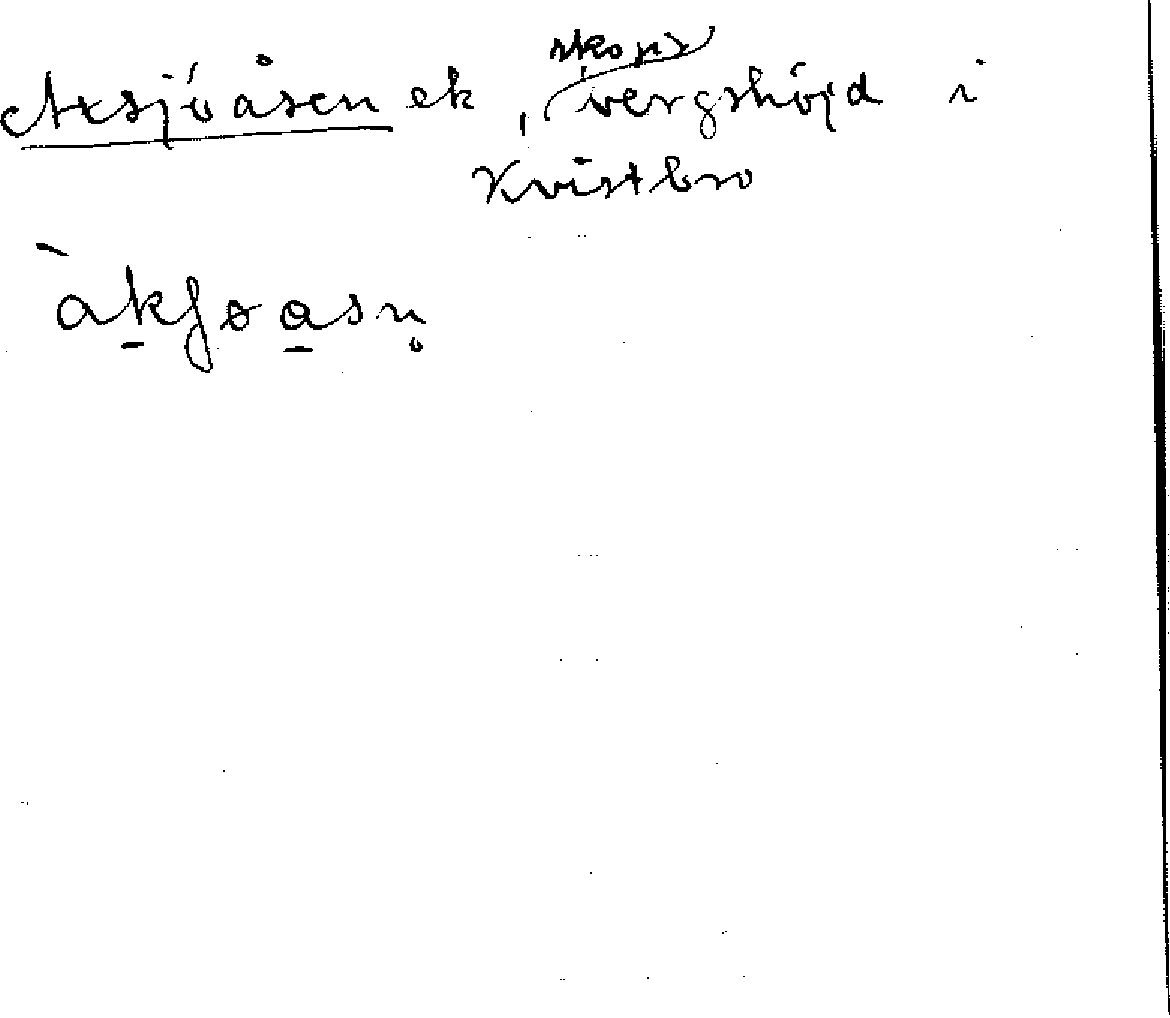 Axsjöåsen ek, skogs
bergshöjd i
Kvistbro
àkʃɷasn̥